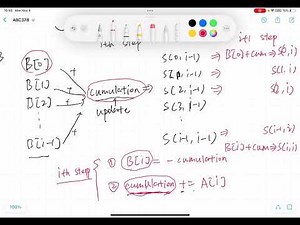 ABC378
i-th step
i+1 step
B[0]
S(0,i-1) ⇒ B[0]+cum ⇒ S(0,i)
B[1]
cumulation
S(1,i-1) ⇒ S(1,i)
B[2]
update
S(2,i-1) ⇒ S(2,i)
S(3,i-1)
B[i-1]
S(i-1,i-1) ⇒ S(i-1,i)
B[i]+cum ⇒ S(i,i)
ith step
① B[i] = - cumulation
② cumulation += A[i]
100%